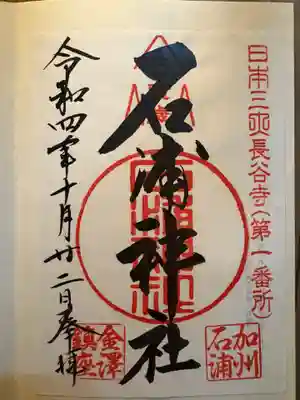 日本三大長谷寺(第一番所
石浦神社
加州
石浦
令和四年十月廿二日奉拝
金澤
鎮座